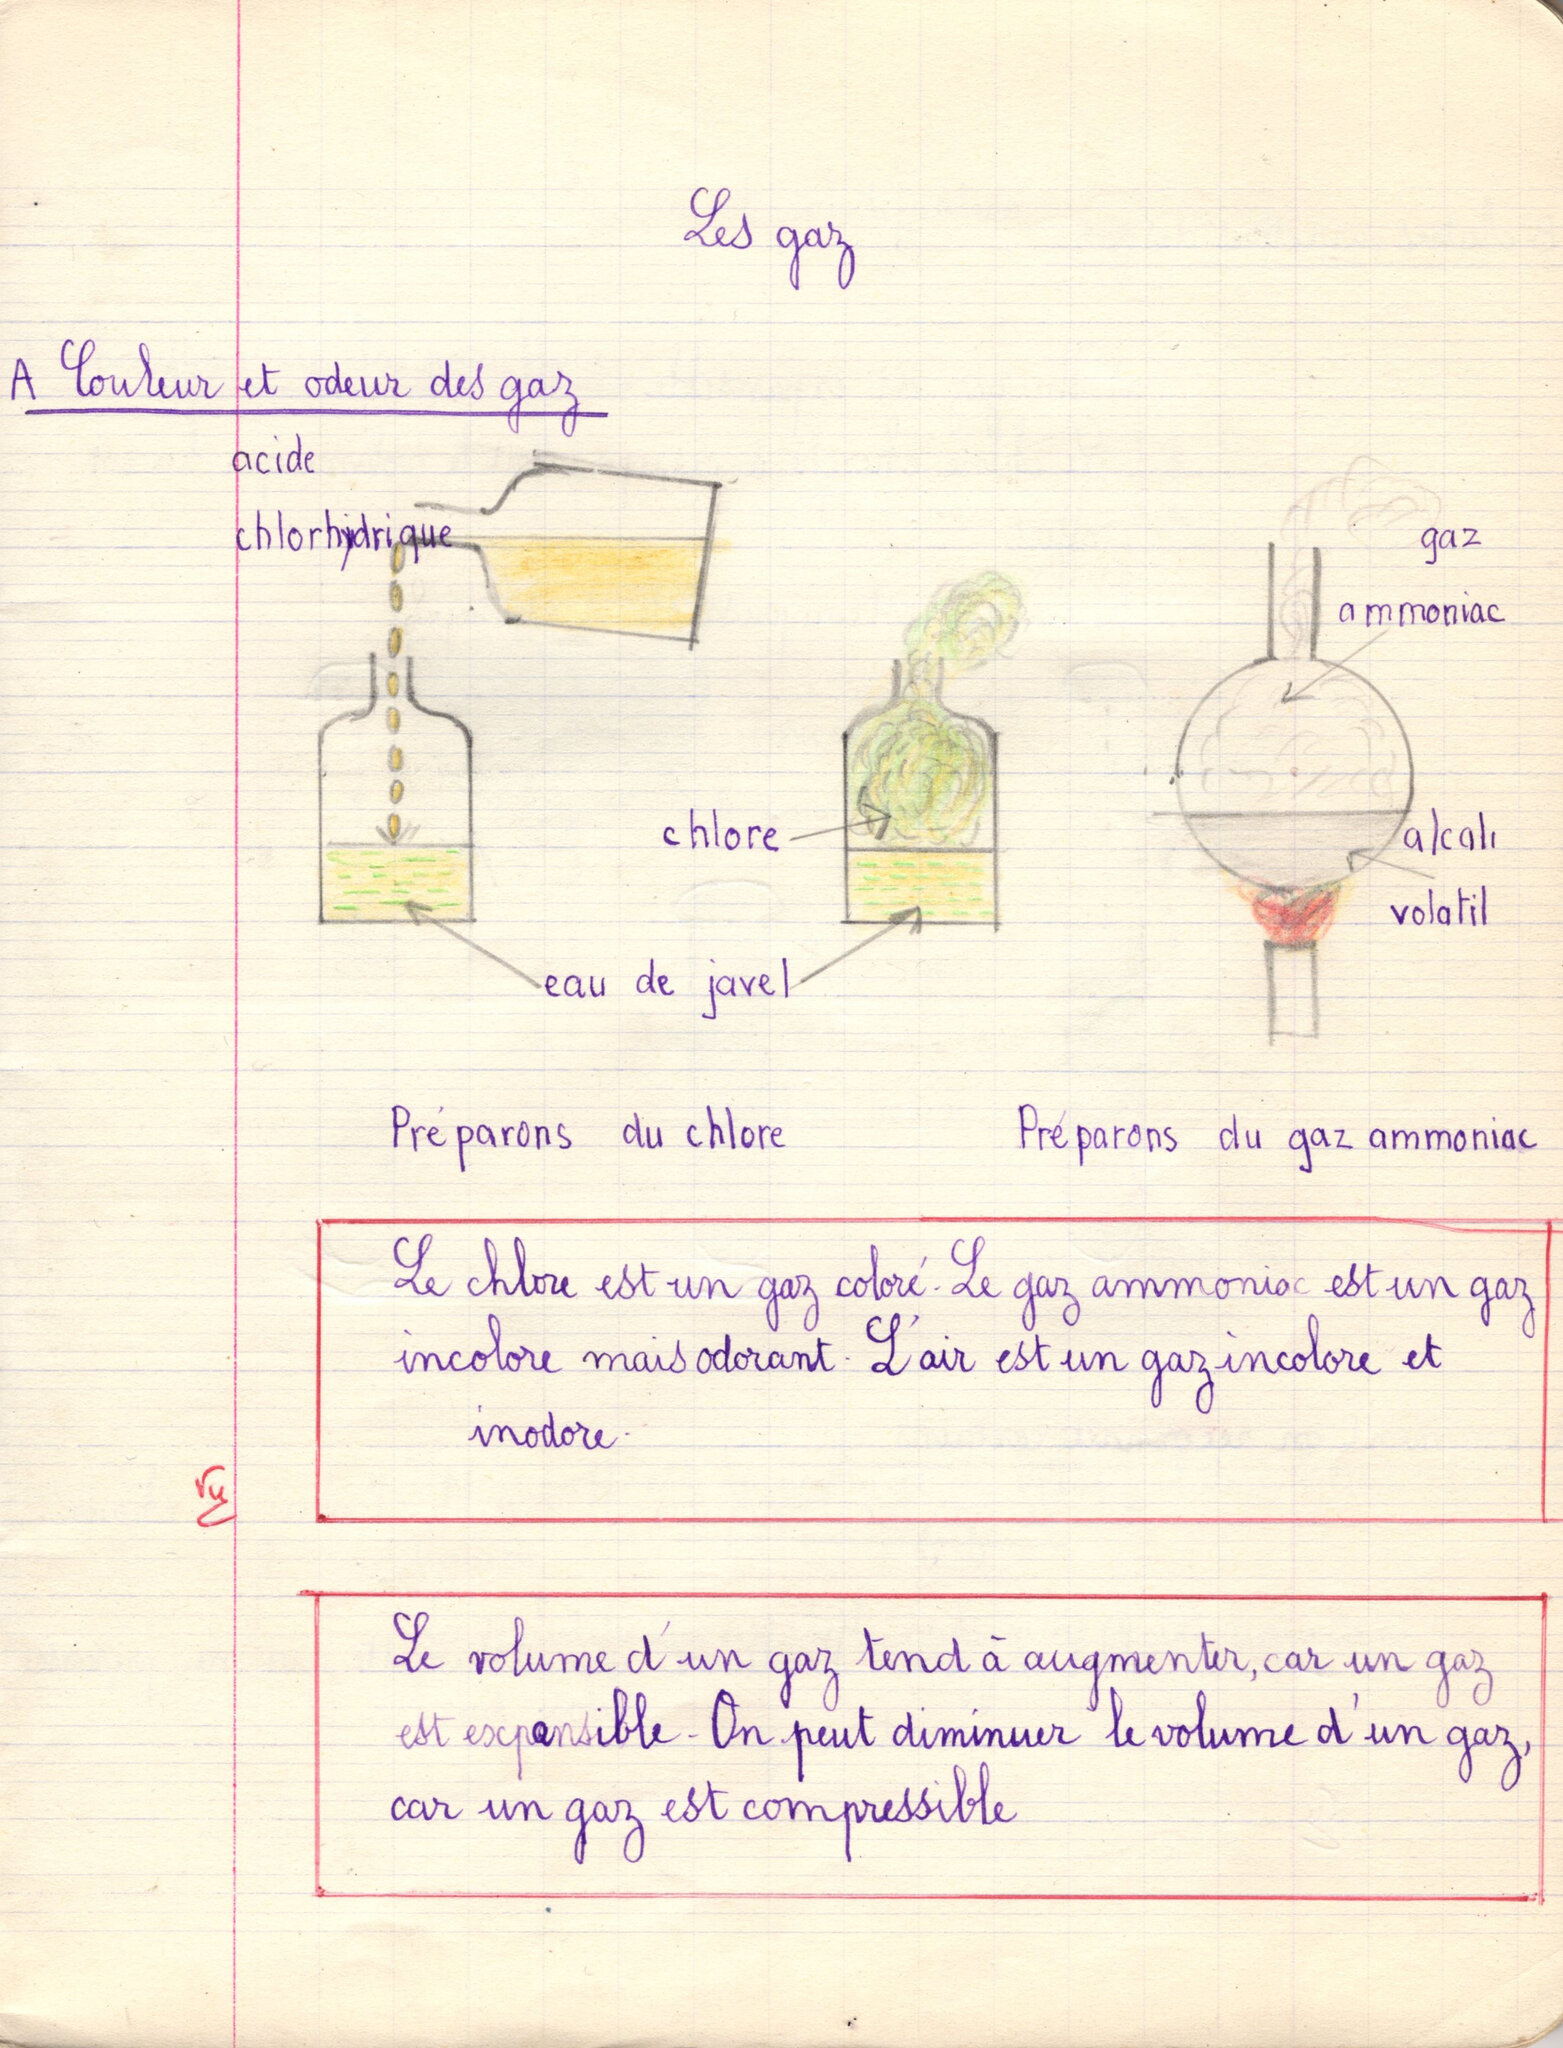 Les gaz
A Couleur et odeur des gaz
acide
chlorhydrique
gaz
ammoniac
chlore
alcali
volatil
eau de javel
Préparons du chlore
Préparons du gaz ammoniac
Le chlore est un gaz coloré. Le gaz ammoniac est un gaz
incolore mais odorant. L'air est un gaz incolore et
inodore.
Vu
Le volume d'un gaz tend à augmenter, car un gaz
est expansible. On peut diminuer le volume d'un gaz,
car un gaz est compressible